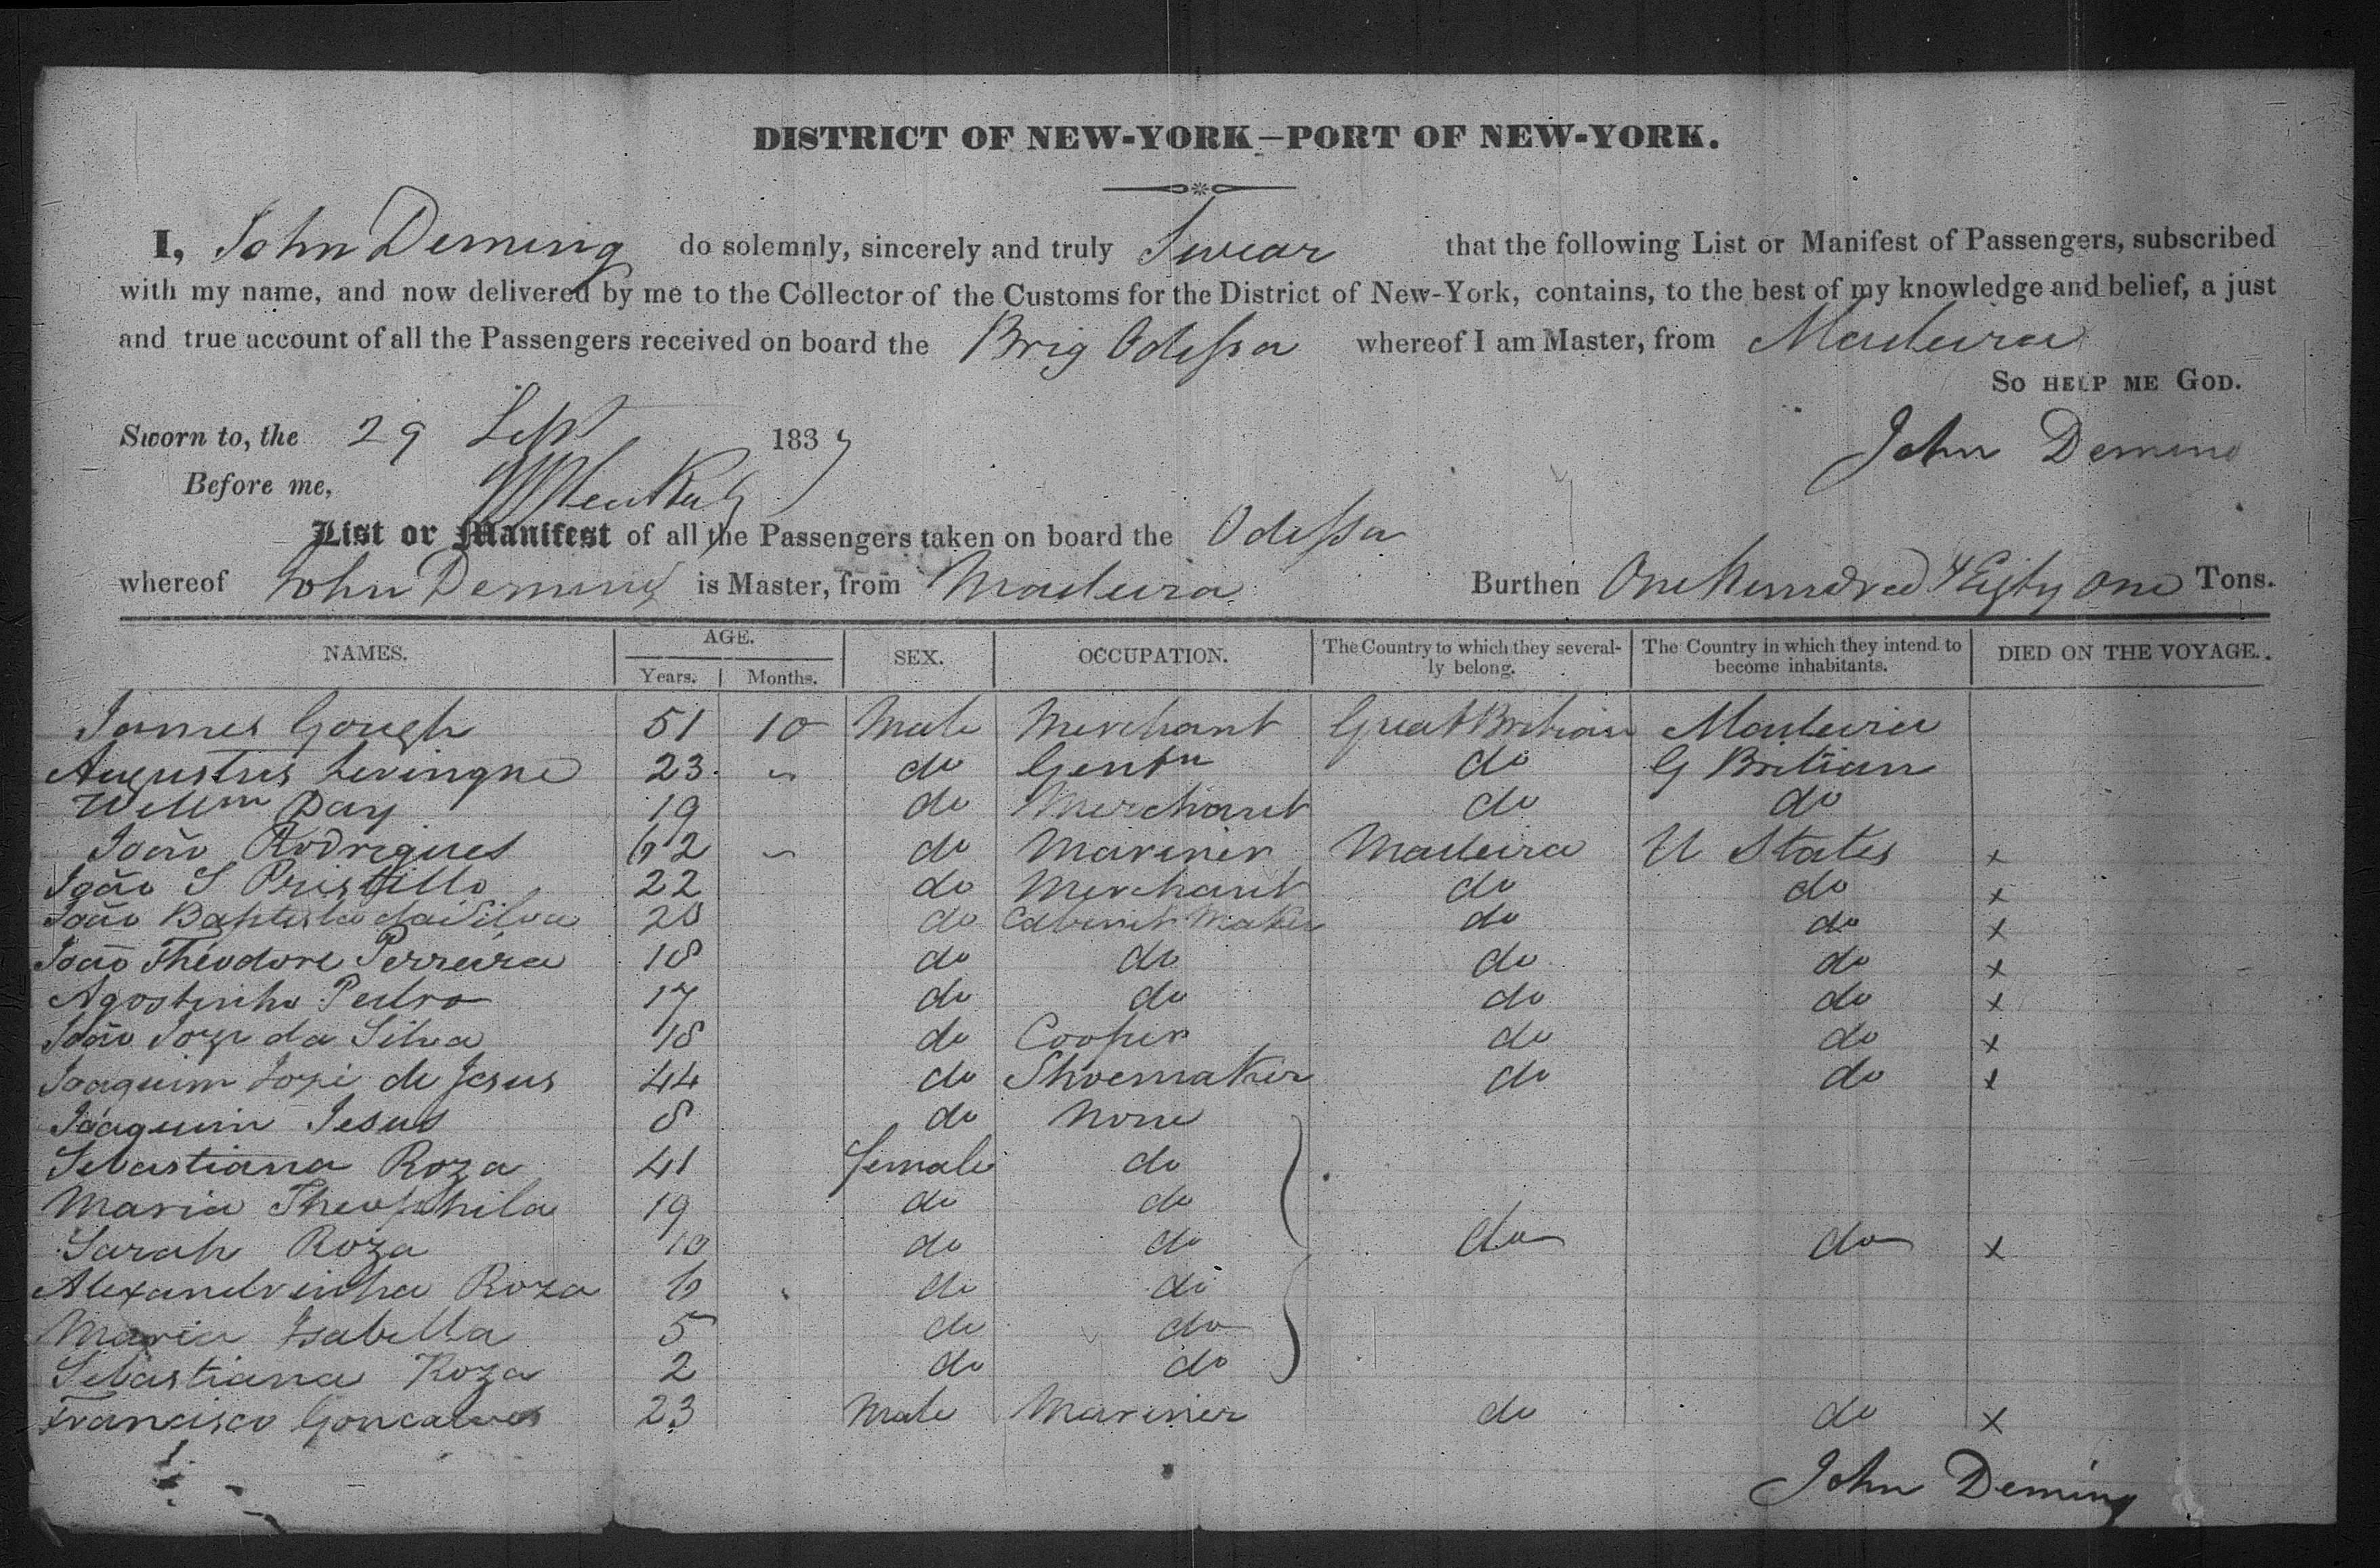 DISTRICT OF NEW-YORK—PORT OF NEW-YORK.
I, John Deming do solemnly, sincerely and truly Swear that the following List or Manifest of Passengers, subscribed
with my name, and now delivered by me to the Collector of the Customs for the District of New-York, contains, to the best of my knowledge and belief, a just
and true account of all the Passengers received on board the Brig Odessa whereof I am Master, from Madeira
So HELP ME GOD.
Sworn to, the 29 Sept 1837 John Deming
Before me,
List or Manifest of all the Passengers taken on board the Odessa
whereof John Deming is Master, from Madeira Burthen One Hundred & Eighty One Tons.
NAMES. AGE. Years. Months. SEX. OCCUPATION. The Country to which they severally belong. The Country in which they intend to become inhabitants. DIED ON THE VOYAGE.
James Gough 51 10 Male Merchant Great Britian Madeira
Augustus Levingne 23 " do Gentn do G Britian
Willm Day 19 do Merchant do do
João Rodrigues 62 " do Mariner Madeira U States x
João S 22 do Merchant do do x
João Baptista da Silva 28 do Cabinet Maker do do x
João Theodore Perreira 18 do do do do x
Agostinho Pedro 17 do do do do x
João Joze da Silva 18 do Cooper do do x
Joaquim Joze de Jesus 44 do Shoemaker do do x
Joaquim Jesus 8 do None
Sebastiana Roza 41 female do
Maria Theophila 19 do do
Sarah Roza 10 do do do do x
Alexandrinha Roza 6 do do
Maria Isabella 5 do do
Sebastiana Roza 2 do do
Francisco Goncalves 23 Male Mariner do do x
John Deming